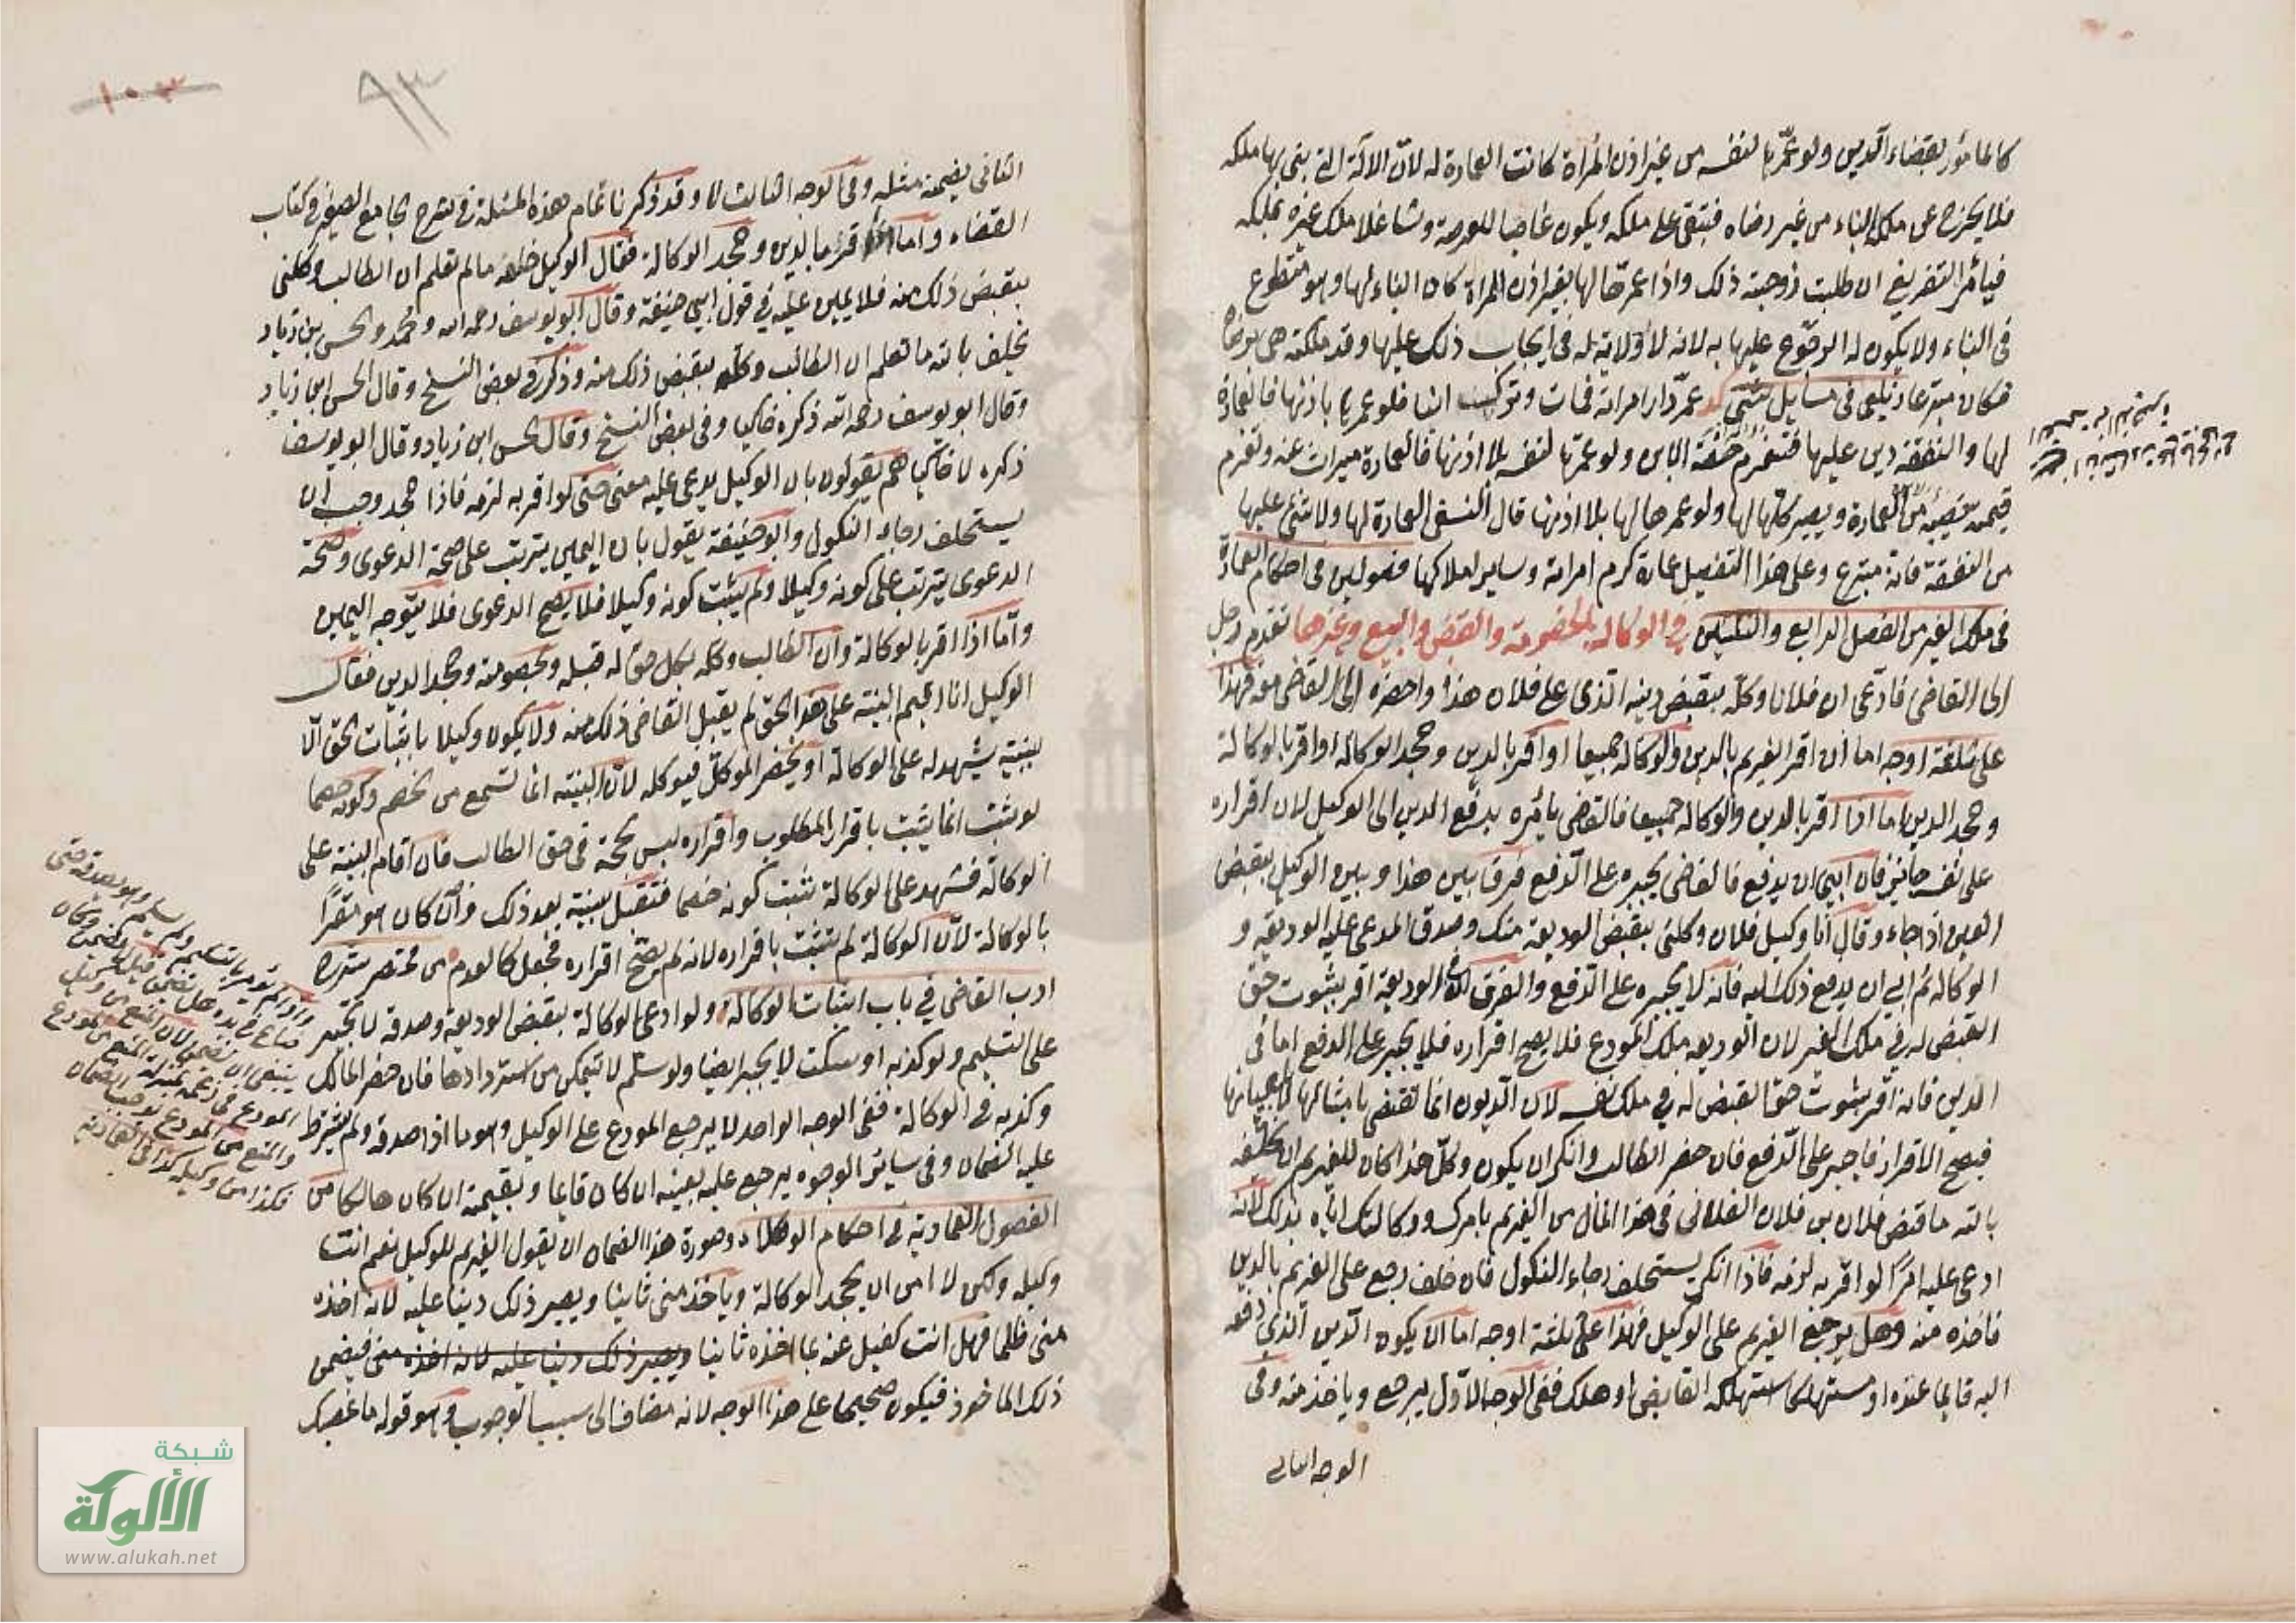 كالمأمور بقضاء الدين ولو عمّرها لنفسه من غير اذن المرأة كانت العمارة له لانّ الآلة التي بنى بها ملكه
فلا يخرج عن ملكه بالبناء من غير رضاه فتبقى على ملكه ويكون غاصبا للعرصة وشاغلا ملك غيره بملكه
فيأمر بالتفريغ ان طلبت زوجته ذلك واذا عمرها لها بغير اذن المرأة كان البناء لها وهو متطوع
فى البناء ولا يكون له الرجوع عليها به لانه لا ولاية له فى ايجاب ذلك عليها وقد ملكته هى برضاها
فكان متبرعا زيلعى فى مسايل شتى عمّر دار امراته فمات وتركها وابنا فلو عمرها باذنها فالعمارة
لها والنفقة دين عليها فتغرم حصّة الابن ولو عمّرها لنفسه بلا اذنها فالعمارة ميراث عنه وتغرم
قيمة نصيبه من العمارة ويصير كلها لها ولو عمرها لها بلا اذنها قال النسفى العمارة لها ولا شئ عليها
من النفقة فانه متبرع وعلى هذا التفصيل عمارة كرم امراته وساير املاكها فصولين فى احكام العمارة
فى ملك الغير من الفصل الرابع والثلثين فى الوكالة بالخصومة والقبض والبيع وغيرها تقدم رجل
الى القاضى فادّعى ان فلانا وكّله بقبض دينه الذى على فلان هذا واحضره الى القاضى معه فهذا
على ثلثة اوجه اما ان اقر الغريم بالدين والوكالة جميعا او اقر بالدين وجحد الوكالة او اقر بالوكالة
وجحد الدين اما اذا اقر بالدين والوكالة جميعا فالقاضى يأمره بدفع الدين الى الوكيل لان اقراره
على نفسه جايز فان ابى ان يدفع فالقاضى يجبره على الدفع فرق بين هذا وبين الوكيل بقبض
العين اذا جاء وقال أنا وكيل فلان وكلنى بقبض الوديعة منك وصدق المدعى عليه الوديعة و
الوكالة ثم ابى ان يدفع ذلك اليه فانه لا يجبره على الدفع والفرق ان فى الوديعة اقر بثبوت حق
القبض له فى ملك الغير لان الوديعة ملك المودع فلا يصح اقراره فلا يجبر على الدفع اما فى
الدين فانه اقر بثبوت حق القبض له فى ملك نفسه لان الديون انما تقضى بامثالها لا باعيانها
فيصح الاقرار فاجبر على الدفع فان حضر الطالب وانكر ان يكون وكّل هذا كان للغريم ان يحلفه
بالله ما قبض فلان بن فلان الفلانى فى هذا المال من الغريم بامرك ووكالتك اياه بذلك لانه
ادعى عليه امرًا لو اقر به لزمه فاذا انكر يستحلف رجاء النكول فان حلف رجع على الغريم بالدين
فاخذه منه وهل يرجع الغريم على الوكيل فهذا على ثلثة اوجه اما ان يكون الدين الذى دفعه
اليه قايما عنده او مستهلكا استهلكه القابض او هلك ففى الوجه الاوّل يرجع وياخذ منه وفى
الوجه الثانى
٩٣
١٠٣
الثانى يضمنه مثله وفى الوجه الثالث لا وقد ذكرنا تمام هذه المسئلة فى شرح الجامع الصغير فى كتاب
القضاء واما اذا اقر بالدين وجحد الوكالة فقال الوكيل حلفه ما لم تعلم ان الطالب وكلنى
بقبض ذلك منه فلا يمين عليه فى قول ابى حنيفة وقال ابو يوسف رحمه الله ومحمد والحسن بن زياد
يحلف بالله ما تعلم ان الطالب وكله بقبض ذلك منه وذكر فى بعض النسخ وقال الحسن ابن زياد
وقال ابو يوسف رحمه الله ذكره خاكيا وفى بعض النسخ وقال الحسن ابن زياد وقال ابو يوسف
ذكره لا حاكيا هم يقولون بان الوكيل يدعى عليه معنى حتى لو اقر به لزمه فاذا جحد وجب ان
يستحلف رجاء النكول وابو حنيفة يقول بان اليمين يترتب على صحة الدعوى وصحة
الدعوى يترتب على كونه وكيلا ولم يثبت كونه وكيلا فلا يصح الدعوى فلا يتوجه اليمين
وأما اذا اقر بالوكالة وان الطالب وكله بكل حق له قبله وبخصومته وجحد الدين فقال
الوكيل انا اقيم البينة على هذا الحق لم يقبل القاضى ذلك منه ولا يكون وكيلا باثبات الحق الّا
ببينة يشهد له على الوكالة او يحضر الموكل فيوكله لانّ البينة انما تسمع من خصم وكونه خصما
لو يثبت انما يثبت باقرار المطلوب واقراره ليس بحجة فى حق الطالب فان اقام البينة على
الوكالة فشهد على الوكالة تثبت كونه خصما فتقبل ببينة بعد ذلك وان كان هو مقرًا
بالوكالة لانّ الوكالة لم تثبت باقراره لانه لم يصّح اقراره فجعل كالعدم من مختصر شرح
ادب القاضى فى باب اثبات الوكالة ولو ادعى الوكالة بقبض الوديعة وصدقه لا يجبر
على التسليم ولو كذبه او سكت لا يجبر ايضا ولو سلم لا يتمكن من استردادها فان حضر المالك
وكذبه فى الوكالة ففى الوجه الواحد لا يرجع المودع على الوكيل وهو ما اذا صدقه ولم يشترط
عليه الضمان وفى سائر الوجوه يرجع عليه بعينه ان كان قايما وبقيمته ان كان هالكا من
الفصول العمادية فى احكام الوكلاء وصورة هذا الضمان ان يقول الغريم للوكيل نعم انت
وكيله ولكن لا امن ان يجحد الوكالة وياخذ منى ثانيا ويصير ذلك دينا عليه لانه اخذه
منى ظلما فهل انت كفيل عنه بما اخذه ثانيا ويصير ذلك دينا عليه لانه اخذه منى فيضمن
ذلك الماخوذ فيكون صحيحا على هذا الوجه لانه مضاف الى سبب الوجوب وهو قوله ما غصبك
ولو لم يؤمر بالتسليم ولم يسلم وهو يصدقه حتى
ضاع فى يده هل يضمن قيل لا يضمن وكان
ينبغى ان يضمن لان المنع من وكيل
المودع فى زعمه بمنزلة المنع من المودع
والمنع من المودع يوجب الضمان
فكذا من وكيله كذا فى العمادية
شبكة
الألوكة
www.alukah.net